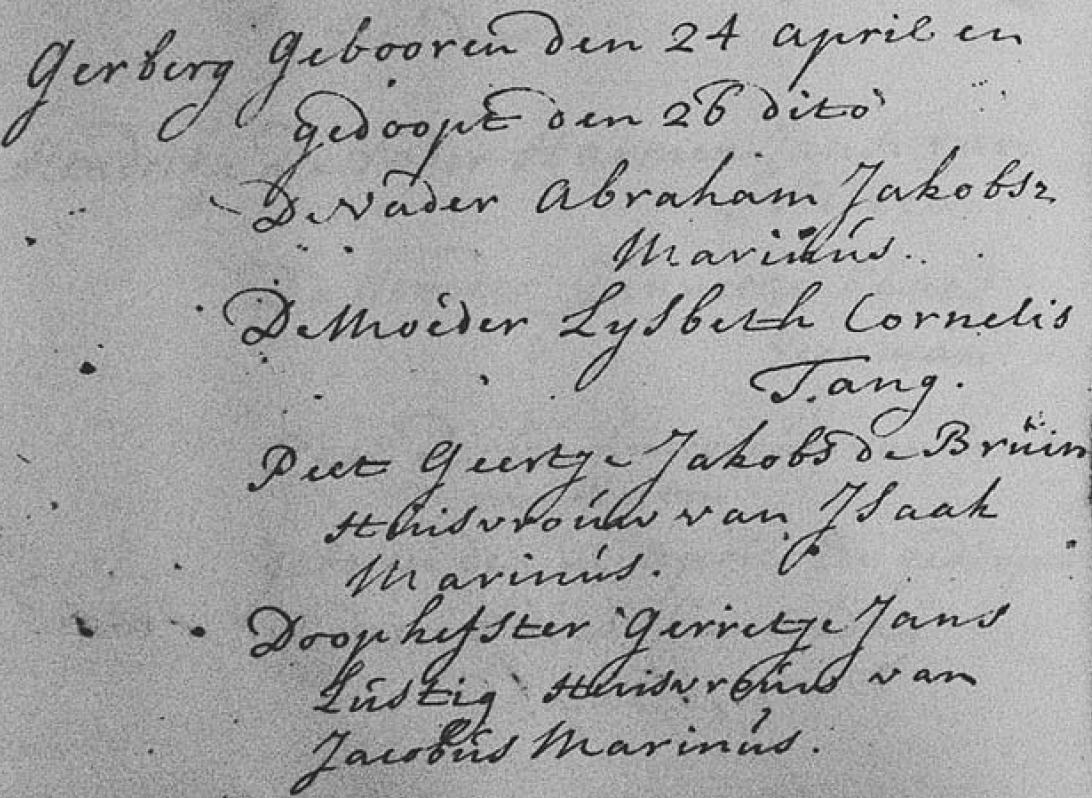 Gerberg Gebooren den 24 april en
gedoopt den 26 dito
De Vader Abraham Jakobsz
Marinús.
De Moeder Lysbeth Cornelis
Tang.
Peet Geertge Jakobs de Brúin
Húisvroúw van Isaak
Marinús.
Doophefster Gerretje Jans
Lústig Húisvroúw van
Jacobús Marinús.